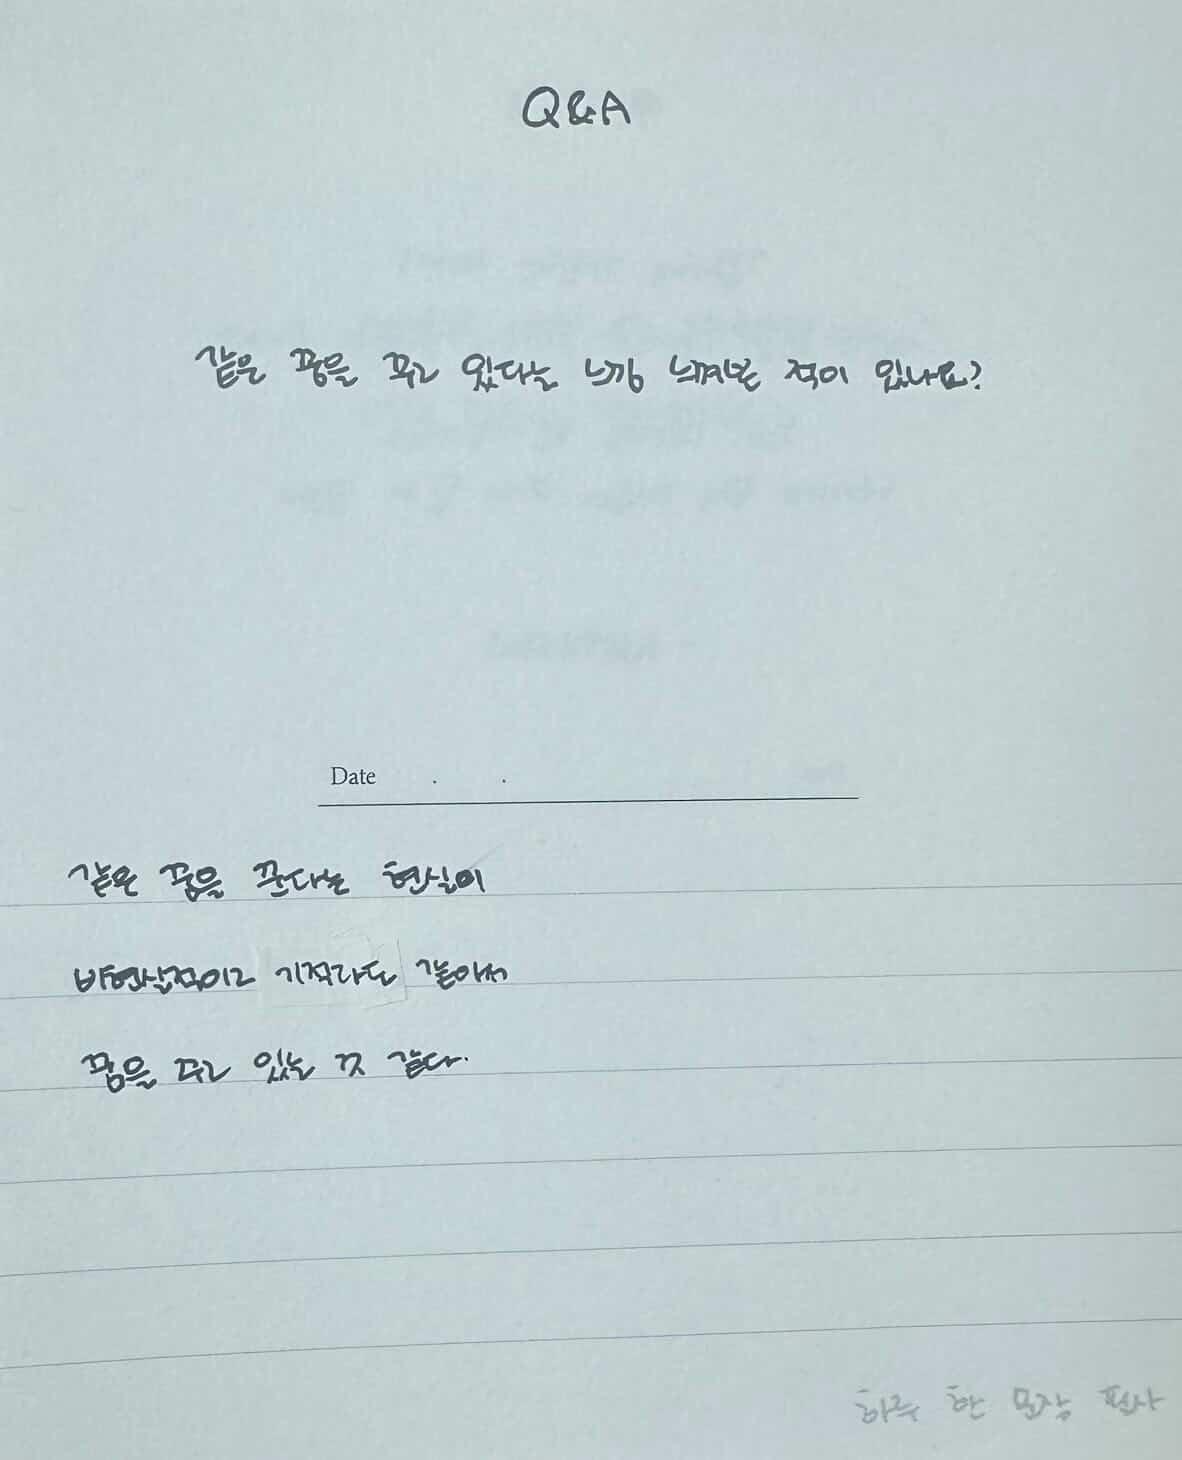 Q&A
같은 꿈을 꾸고 있다는 느낌 느껴본 적이 있나요?
Date . .
같은 꿈을 꾼다는 현실이
비현실적이고 기적라도 같아서
꿈을 꾸고 있는 것 같다.
하루 한 문장 필사